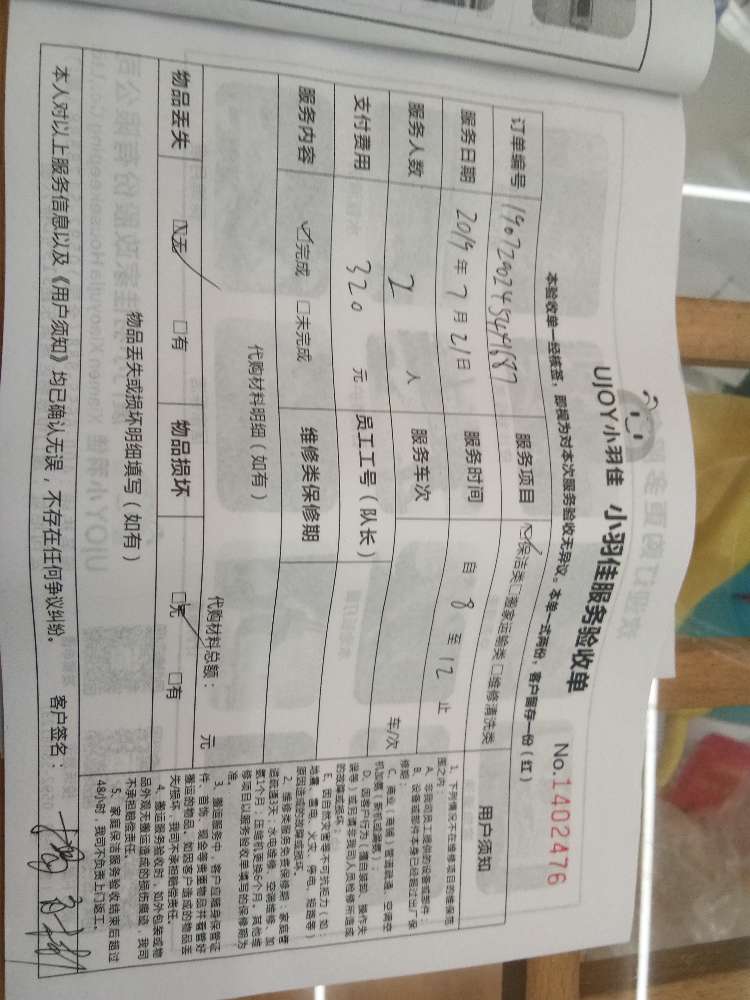 UJOY小羽佳 小羽佳服务验收单
No.1402476
本验收单一经核签，即视为对本次服务验收无异议。本单一式两份，客户留存一份（红）
订单编号
服务项目 ☑保洁类 □搬家运输类 □维修清洗类
服务日期 2019年7月21日 服务时间 自 8 至 12 止
服务人数 2 人 服务车次 车/次
支付费用 320 元 员工工号（队长）
服务内容 ☑完成 □未完成 维修类保修期
代购材料明细（如有）
代购材料总额： 元
物品丢失 ☑无 □有 物品损坏 ☑无 □有
物品丢失或损坏明细填写（如有）
本人对以上服务信息以及《用户须知》均已确认无误，不存在任何争议纠纷。 客户签名：
用户须知
1、下列情况不在维修项目的维保范
围之内：
A、非我司员工提供的设备或部件；
B、设备或部件本身已经超过出厂保
修期；
E、因自然灾害等不可抗拒力（如：
地震、雷电、火灾、停电、短路等）
原因造成的故障或损坏。
2、维修类服务免费保修期：家庭管
道疏通3天，水电维修、空调维修、加
氨1个月；灶具维机更换6个月。其他维
修项目以服务验收单填写的保修期为
准。
3、搬运服务中，客户应随身保管证
件、首饰、现金等贵重物品并看管好
搬运的物品。如因客户造成的物品丢
失/损坏，我司不承担赔偿责任。
4、搬运服务验收时，如外包装或物
品外观无搬运造成的损伤痕迹，我司
不承担赔偿责任。
5、家庭保洁服务验收结束后超过
48小时，我司不负责上门返工。